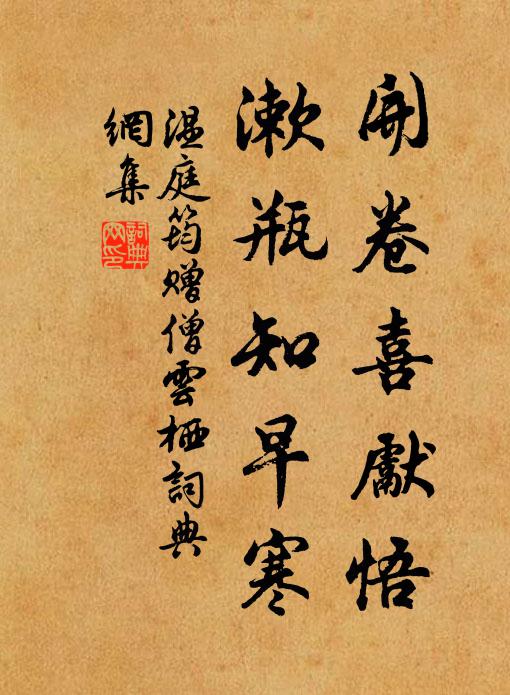 開卷喜獻悟
漱瓶知早寒
温庭筠贈僧雲栖詞典
網集
詞典
网印